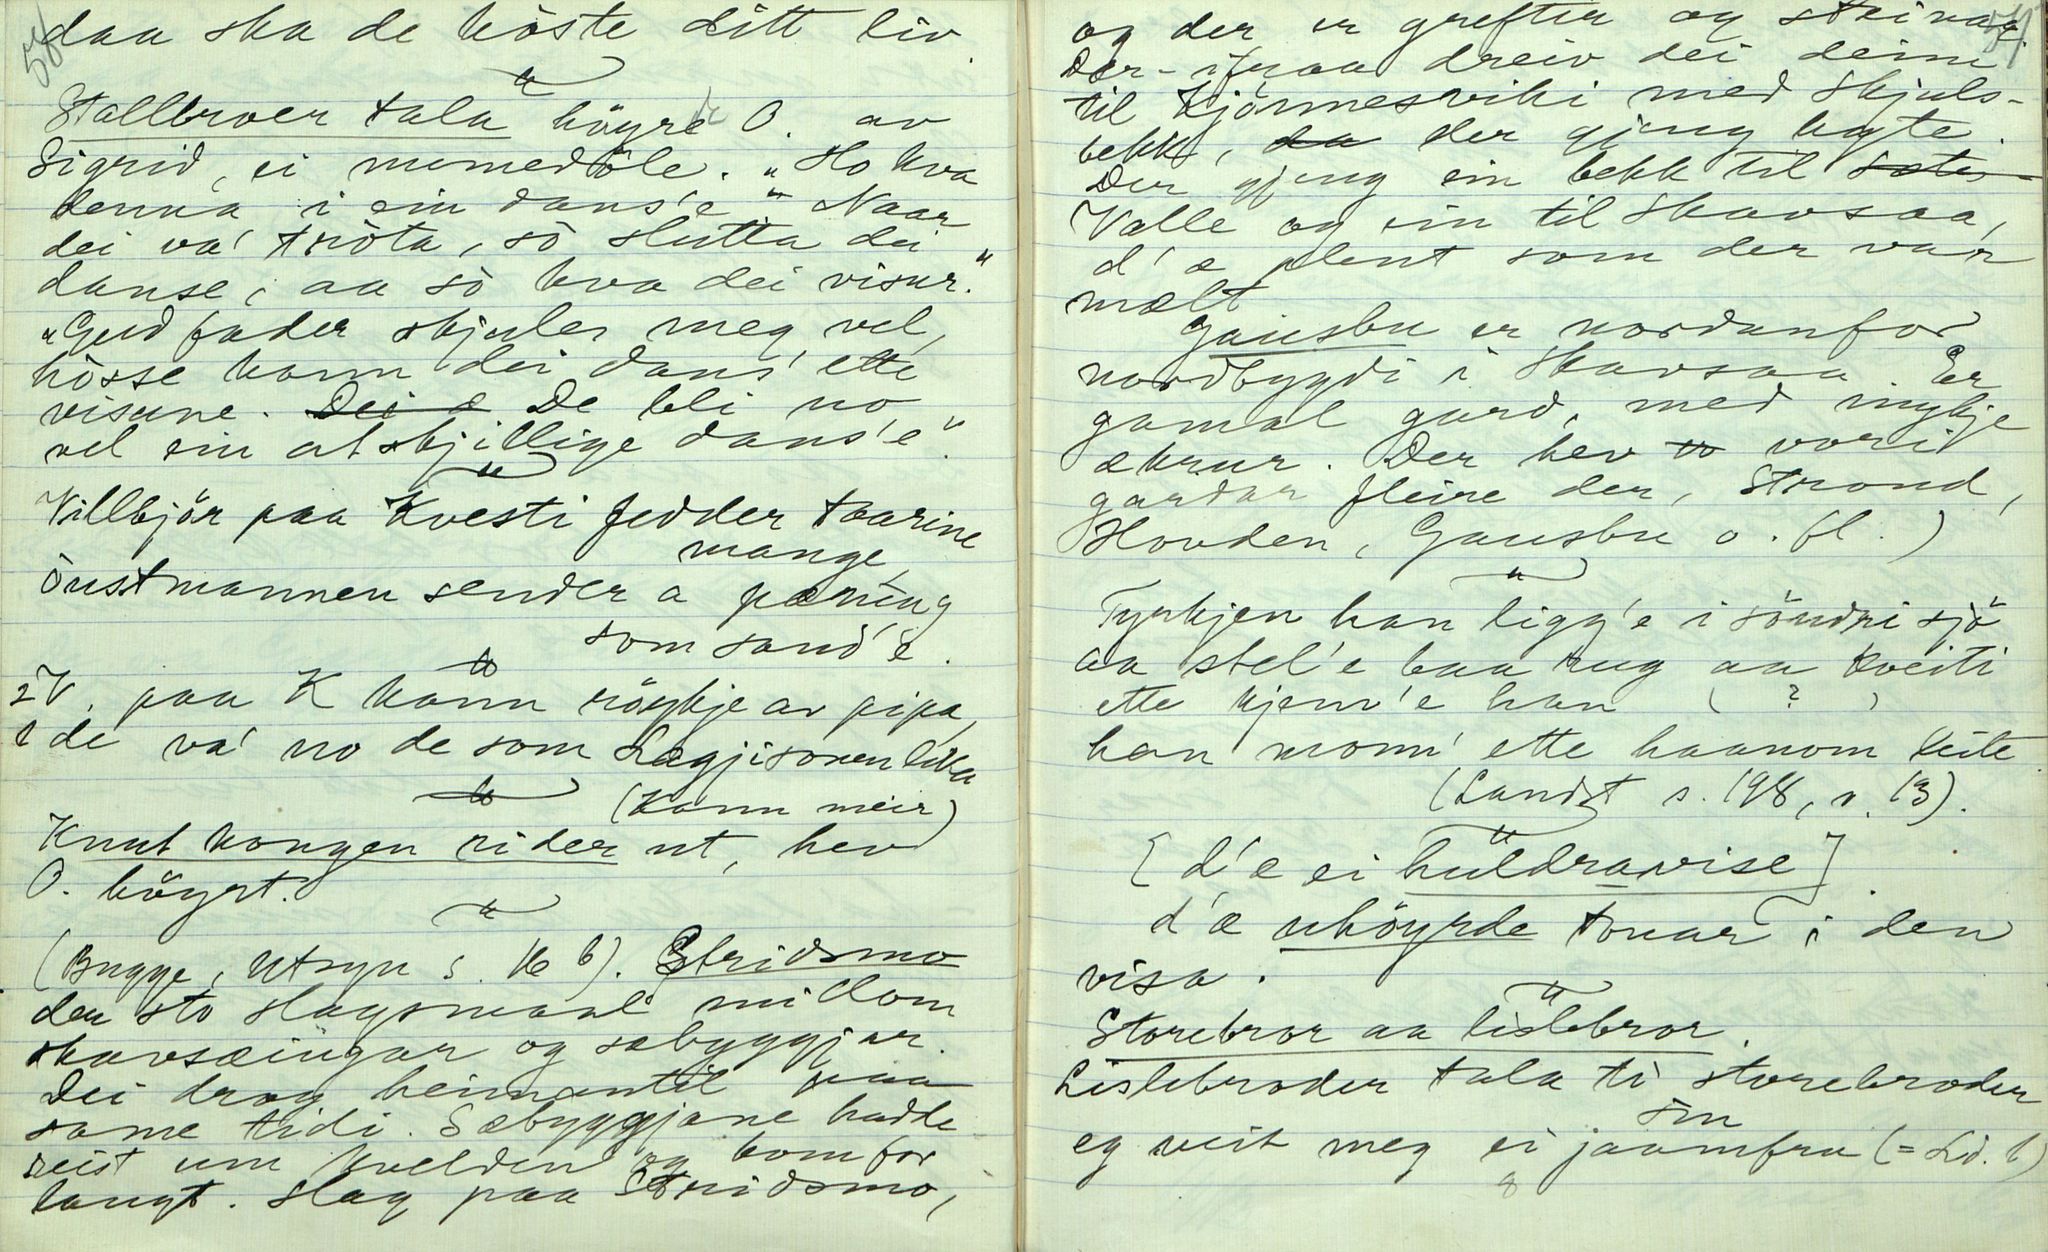 56
daa ska de köste ditt liv.
Stallbroer tala höyre O. av
Sigrid, ei mumedöle. "Ho kva
denna i ein dans'e" Naar
dei va' tröta, so slutta dei
danse, aa so kva dei visur."
"Gud fader skjuler meg vel,
hösse kann dei dans' ette
visune. Dei æ De bli no
vel ein atskjillige dans'e".
Villbjör paa Kvesti fedder taarine
mange,
öustmannen sender a pæning
som sand'e.
2 V. paa K kann röykje av pipa,
de va' no de som Lagjisonen lika
(kann meir)
Knut kongen rider ut, hev
O. höyrt.
(Bugge, Utsyn s. 16 b). Stridsmo
der sto slagsmaal millom
skavsæingar og sæbyggjar.
Dei drog heimantil paa
same tidi. Sæbyggjane hadde
reist um kvelden og kom for
langt. Slag paa Stridsmo,
57
og der er grefter og steinar.
Der-ifraa dreiv dei deim
til Kjönnesviki med Skjuls-
bekk, da der gjeng bgte.
Der gjeng ein bekk til sæter-
Valle og ein til Skavsaa,
d'æ plent som der var
mælt
Gausbu er nordanfor
nordbygdi i Skavsaa. Er
gamal gard, med mykje
ækrur. Der hev vo vorit
gardar fleire der, Strond,
Hovden, Gausbu o. fl.)
Tyrkjen han ligg'e i söndri sjö
aa stel'e baa rug aa kveiti
ette kjem'e han ( ? )
han monn' ette haanom leite
(Landst s. 198, v. 13).
[d'e ei huldravise].
d'æ uhöyrde tonar i den
visa.
Storebror aa lislebror.
Lislebroder tala ti storebroder
sin
eg veit meg ei jaamfru (= Ld. 1)
8